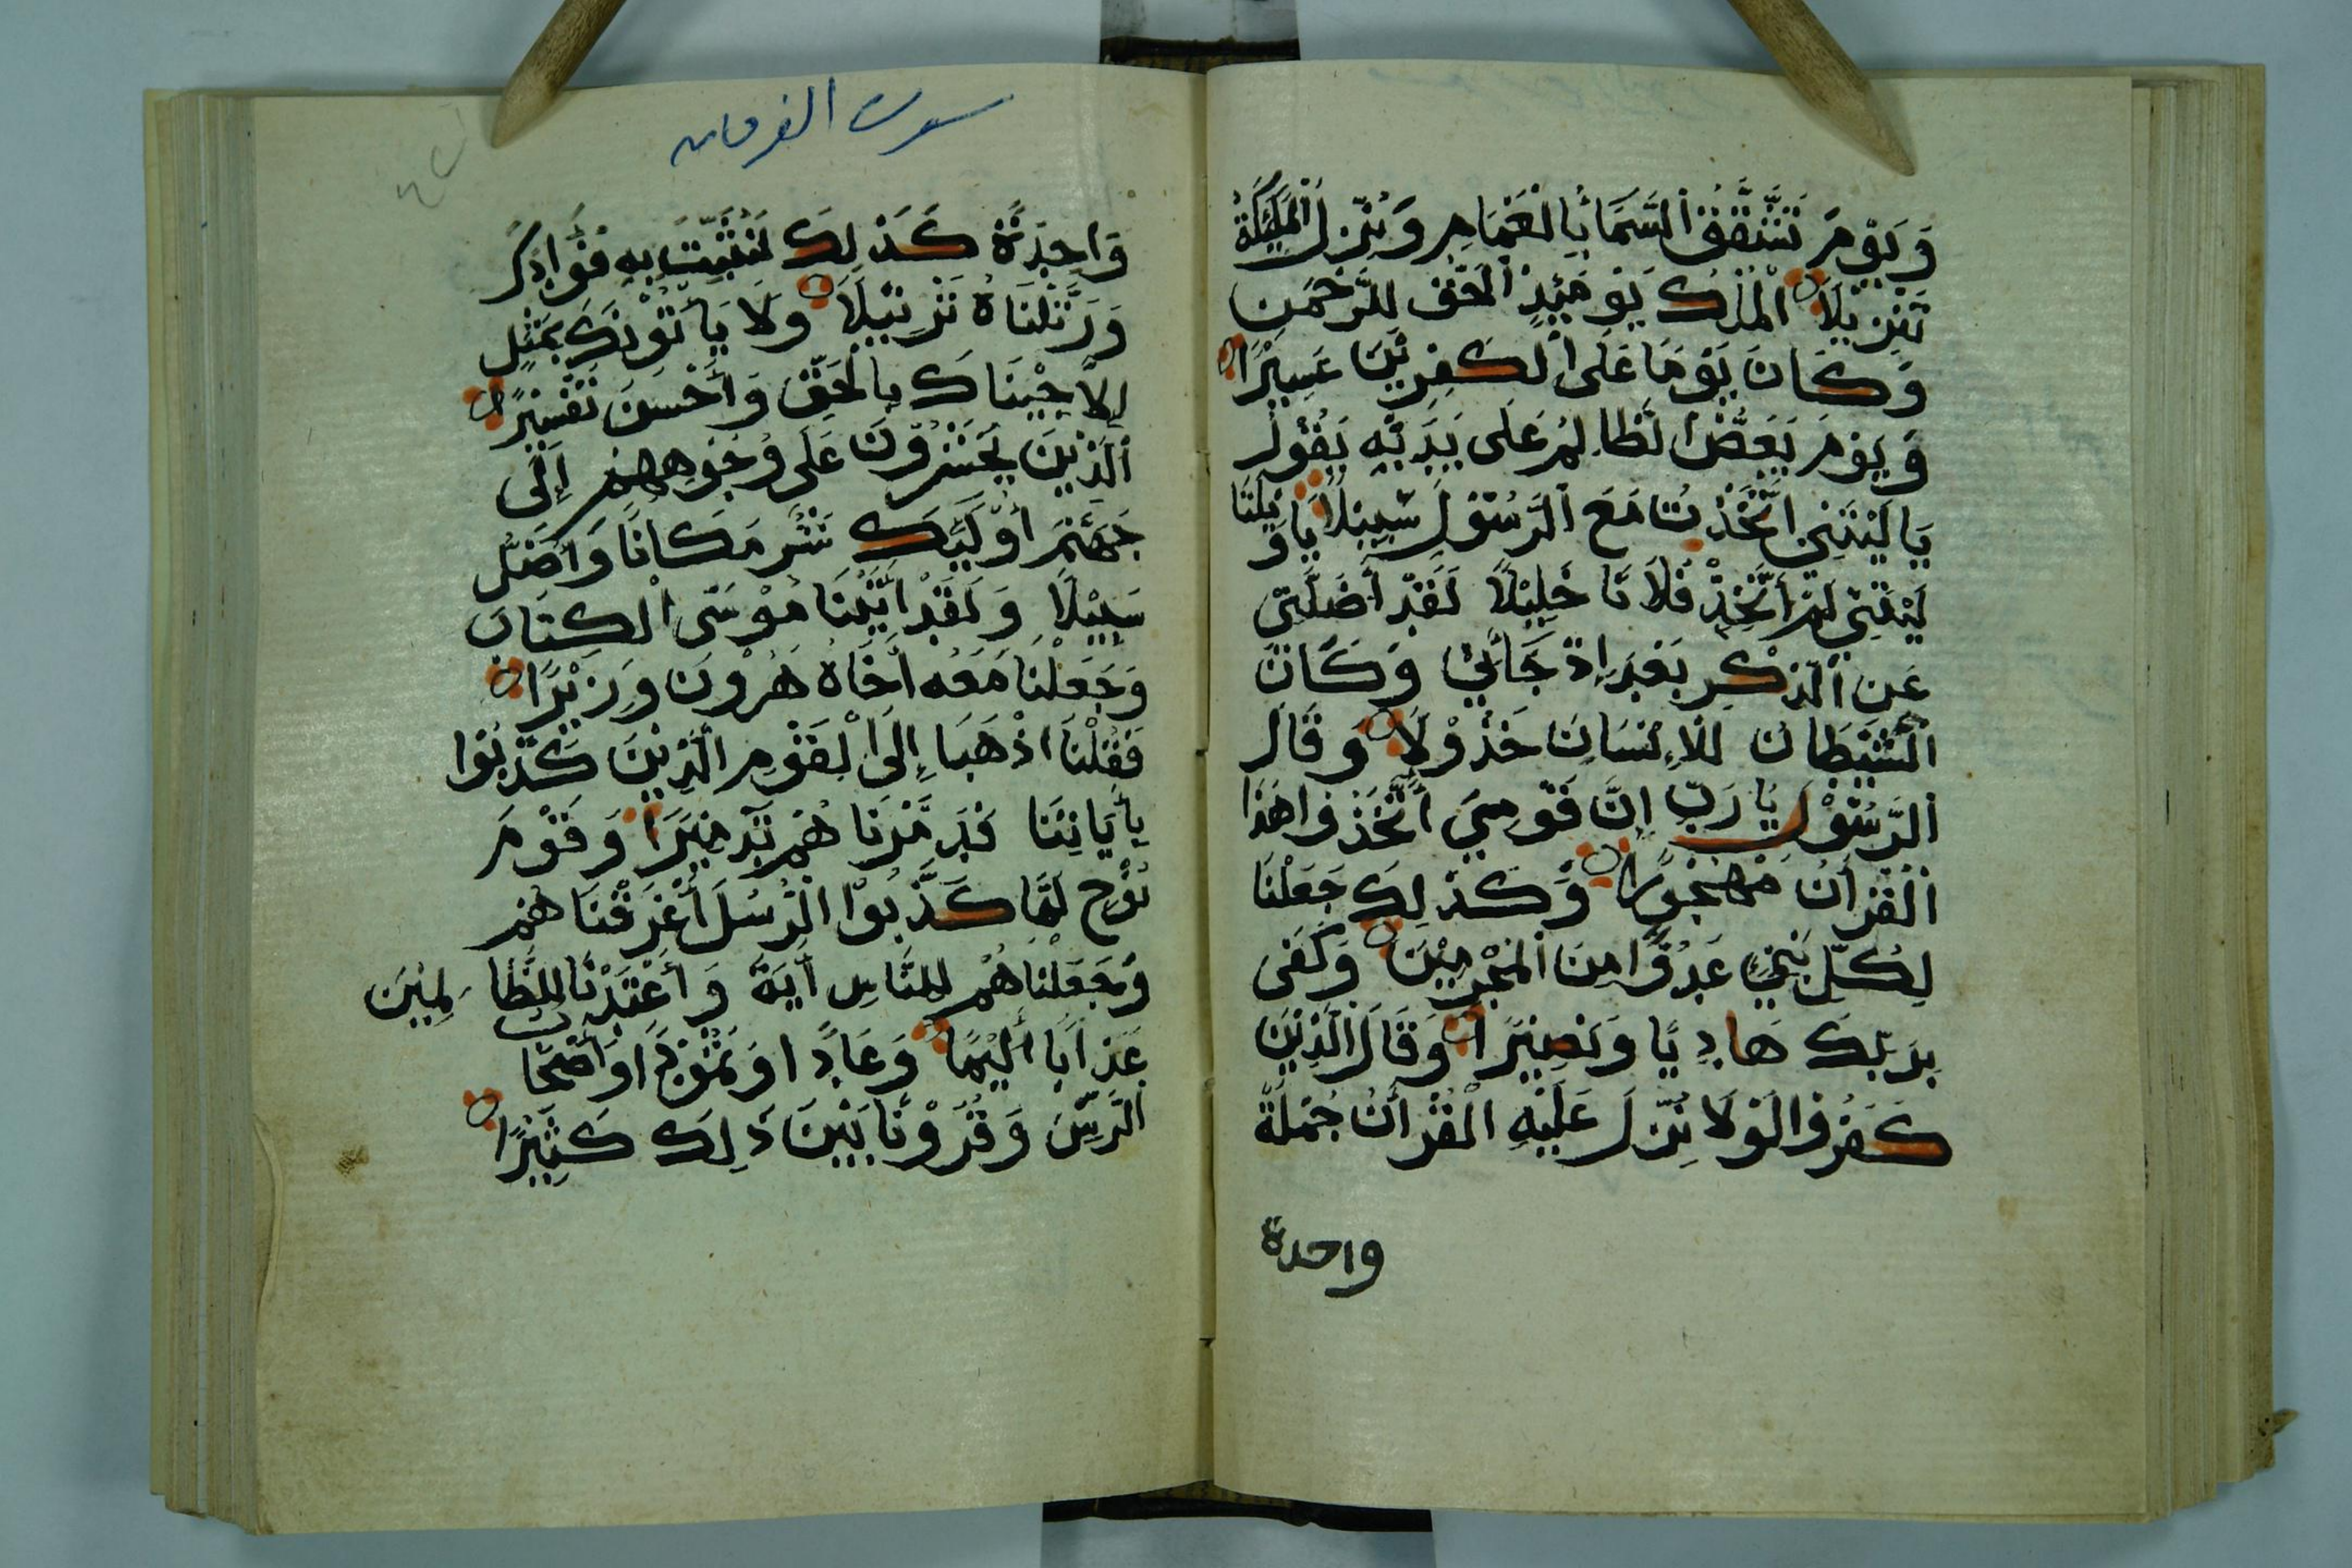 وَيَوْمَ تَشَّقَّقُ السَّمَا بِالْغَمَامِ وَنُزِّلَ الْمَلَئِكَةُ
تَنْزِيلًا الْمُلْكُ يَوْمَئِذٍ الْحَقُّ لِلرَّحْمَنِ
وَكَانَ يَوْمًا عَلَى الْكَفِرِيْنَ عَسِيْرًا
وَيَوْمَ يَعَضُّ الظَّالِمُ عَلَى يَدَيْهِ يَقُولُ
يَا لَيْتَنِي اتَّخَذْتُ مَعَ الرَّسُوْلِ سَبِيْلًا يَا وَيْلَتَا
لَيْتَنِيْ لَمْ أَتَّخِذْ فُلَانًا خَلِيْلًا لَقَدْ أَضَلَّنِيْ
عَنِ الذِّكْرِ بَعْدَ إِذْ جَأَنِيْ وَكَانَ
الشَّيْطَانُ لِلْأِنْسَانِ خَذُوْلًا وَقَالَ
الرَّسُوْلُ يَا رَبِّ إِنَّ قَوْمِيَ اتَّخَذُوا هَذَا
الْقُرْأَنَ مَهْجُوْرًا وَكَذَلِكَ جَعَلْنَا
لِكُلِّ نَبِيٍّ عَدُوًّا مِنَ الْمُجْرِمِيْنَ وَكَفَى
بِرَبِّكَ هَادِيًا وَنَصِيْرًا وَقَالَ الَّذِيْنَ
كَفَرُوا لَوْلَا نُزِّلَ عَلَيْهِ الْقُرْأَنُ جُمْلَةً
واحدة
سورة الفرقان
وَاحِدَةً كَذَلِكَ لِنُثَبِّتَ بِهِ فُؤَادَكَ
وَرَتَّلْنَاهُ تَرْتِيْلًا وَلَا يَأْتُوْنَكَ بِمَثَلٍ
إِلَّا جِيْنَاكَ بِالْحَقِّ وَأَحْسَنَ تَفْسِيْرًا
الَّذِيْنَ يُحْشَرُوْنَ عَلَى وُجُوْهِهِمْ إِلَى
جَهَنَّمَ أُوْلَئِكَ شَرٌّ مَكَانًا وَأَضَلُّ
سَبِيْلًا وَلَقَدْ اَتَيْنَا مُوْسَى الْكِتَابَ
وَجَعَلْنَا مَعَهُ أَخَاهُ هَرُوْنَ وَزِيْرًا
فَقُلْنَا اذْهَبَا إِلَى الْقَوْمِ الَّذِيْنَ كَذَّبُوْا
بِأَيَاتِنَا فَدَمَّرْنَا هُمْ تَدْمِيْرًا وَقَوْمَ
نُوْحٍ لَمَّا كَذَّبُوْا الرُّسُلَ أَغْرَقْنَا هُمْ
وَجَعَلْنَا هُمْ لِلنَّاسِ أَيَةً وَأَعْتَدْنَا لِلظَّا لِمِيْنَ
عَذَابًا أَلِيْمًا وَعَادًا وَثَمُوْدَ اْ وَأَصْحَابَ
الرَّسِّ وَقُرُوْنًا بَيْنَ ذَلِكَ كَثِيْرًا